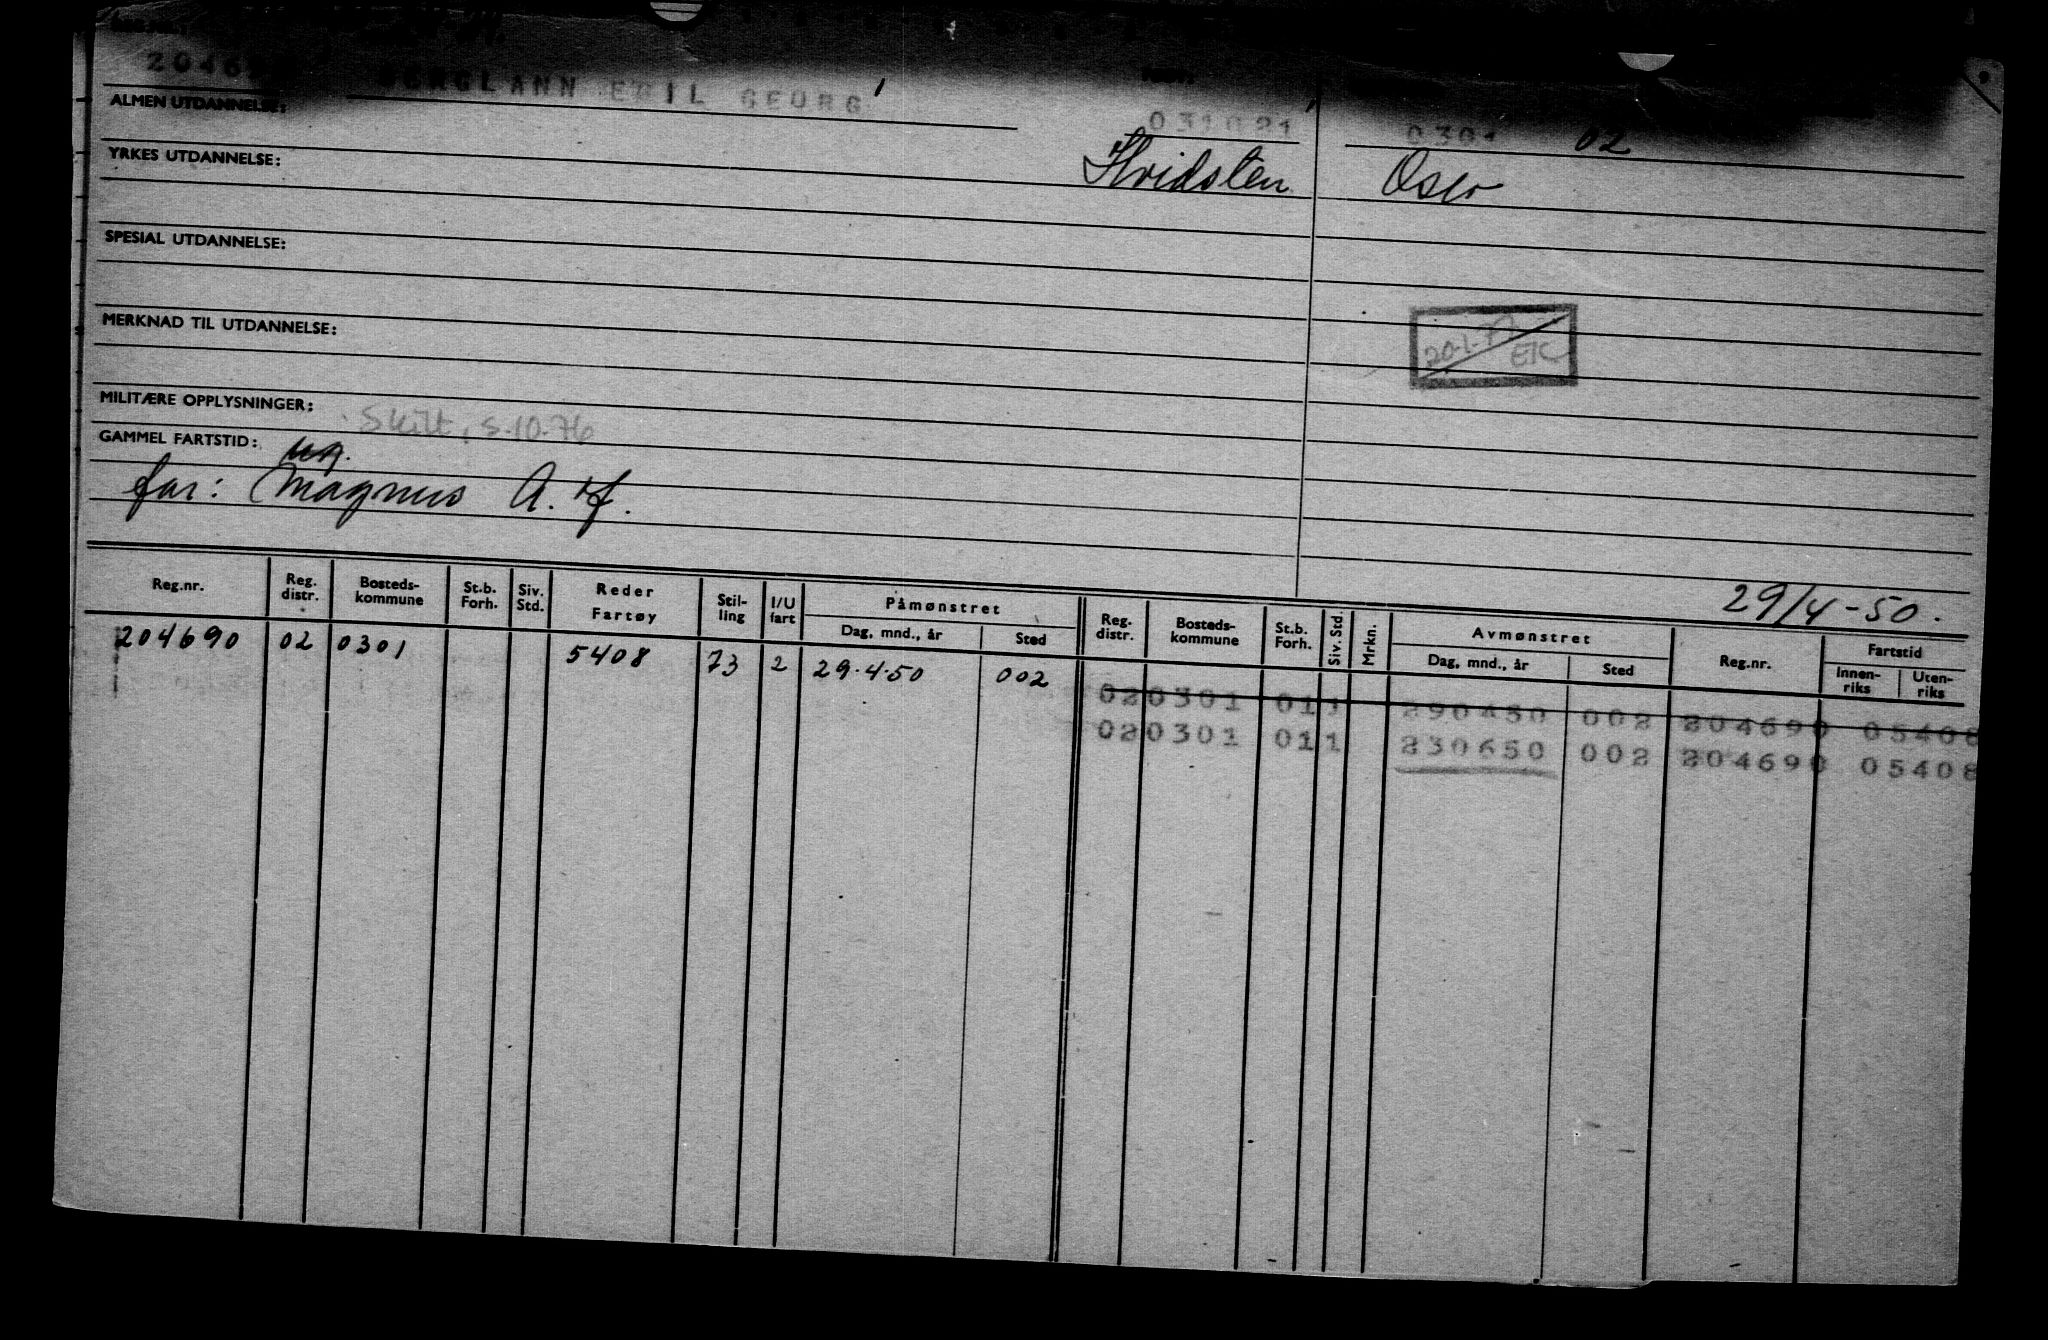 20469
EGIL GEORG
ALMEN UTDANNELSE:
031021 0301 02
YRKES UTDANNELSE:
Hvidsten Oslo
SPESIAL UTDANNELSE:
MERKNAD TIL UTDANNELSE:
20-1-77 EK
MILITÆRE OPPLYSNINGER:
Skilt, 5.10.76
GAMMEL FARTSTID:
ug.
far: Magnus A. Hf.
29/4-50.
Reg.nr. Reg. distr. Bosteds-kommune St.b. Forh. Siv. Std. Reder Fartøy Stil-ling I/U fart Påmønstret Dag, mnd., år Sted Reg. distr. Bosteds-kommune St.b. Forh. Siv. Std. Mrkn. Avmønstret Dag, mnd., år Sted Reg.nr. Fartstid Innen-riks Uten-riks
204690 02 0301 5408 73 2 29.4.50 002
020301 011 290450 002 204690 05408
020301 011 230650 002 204690 05408